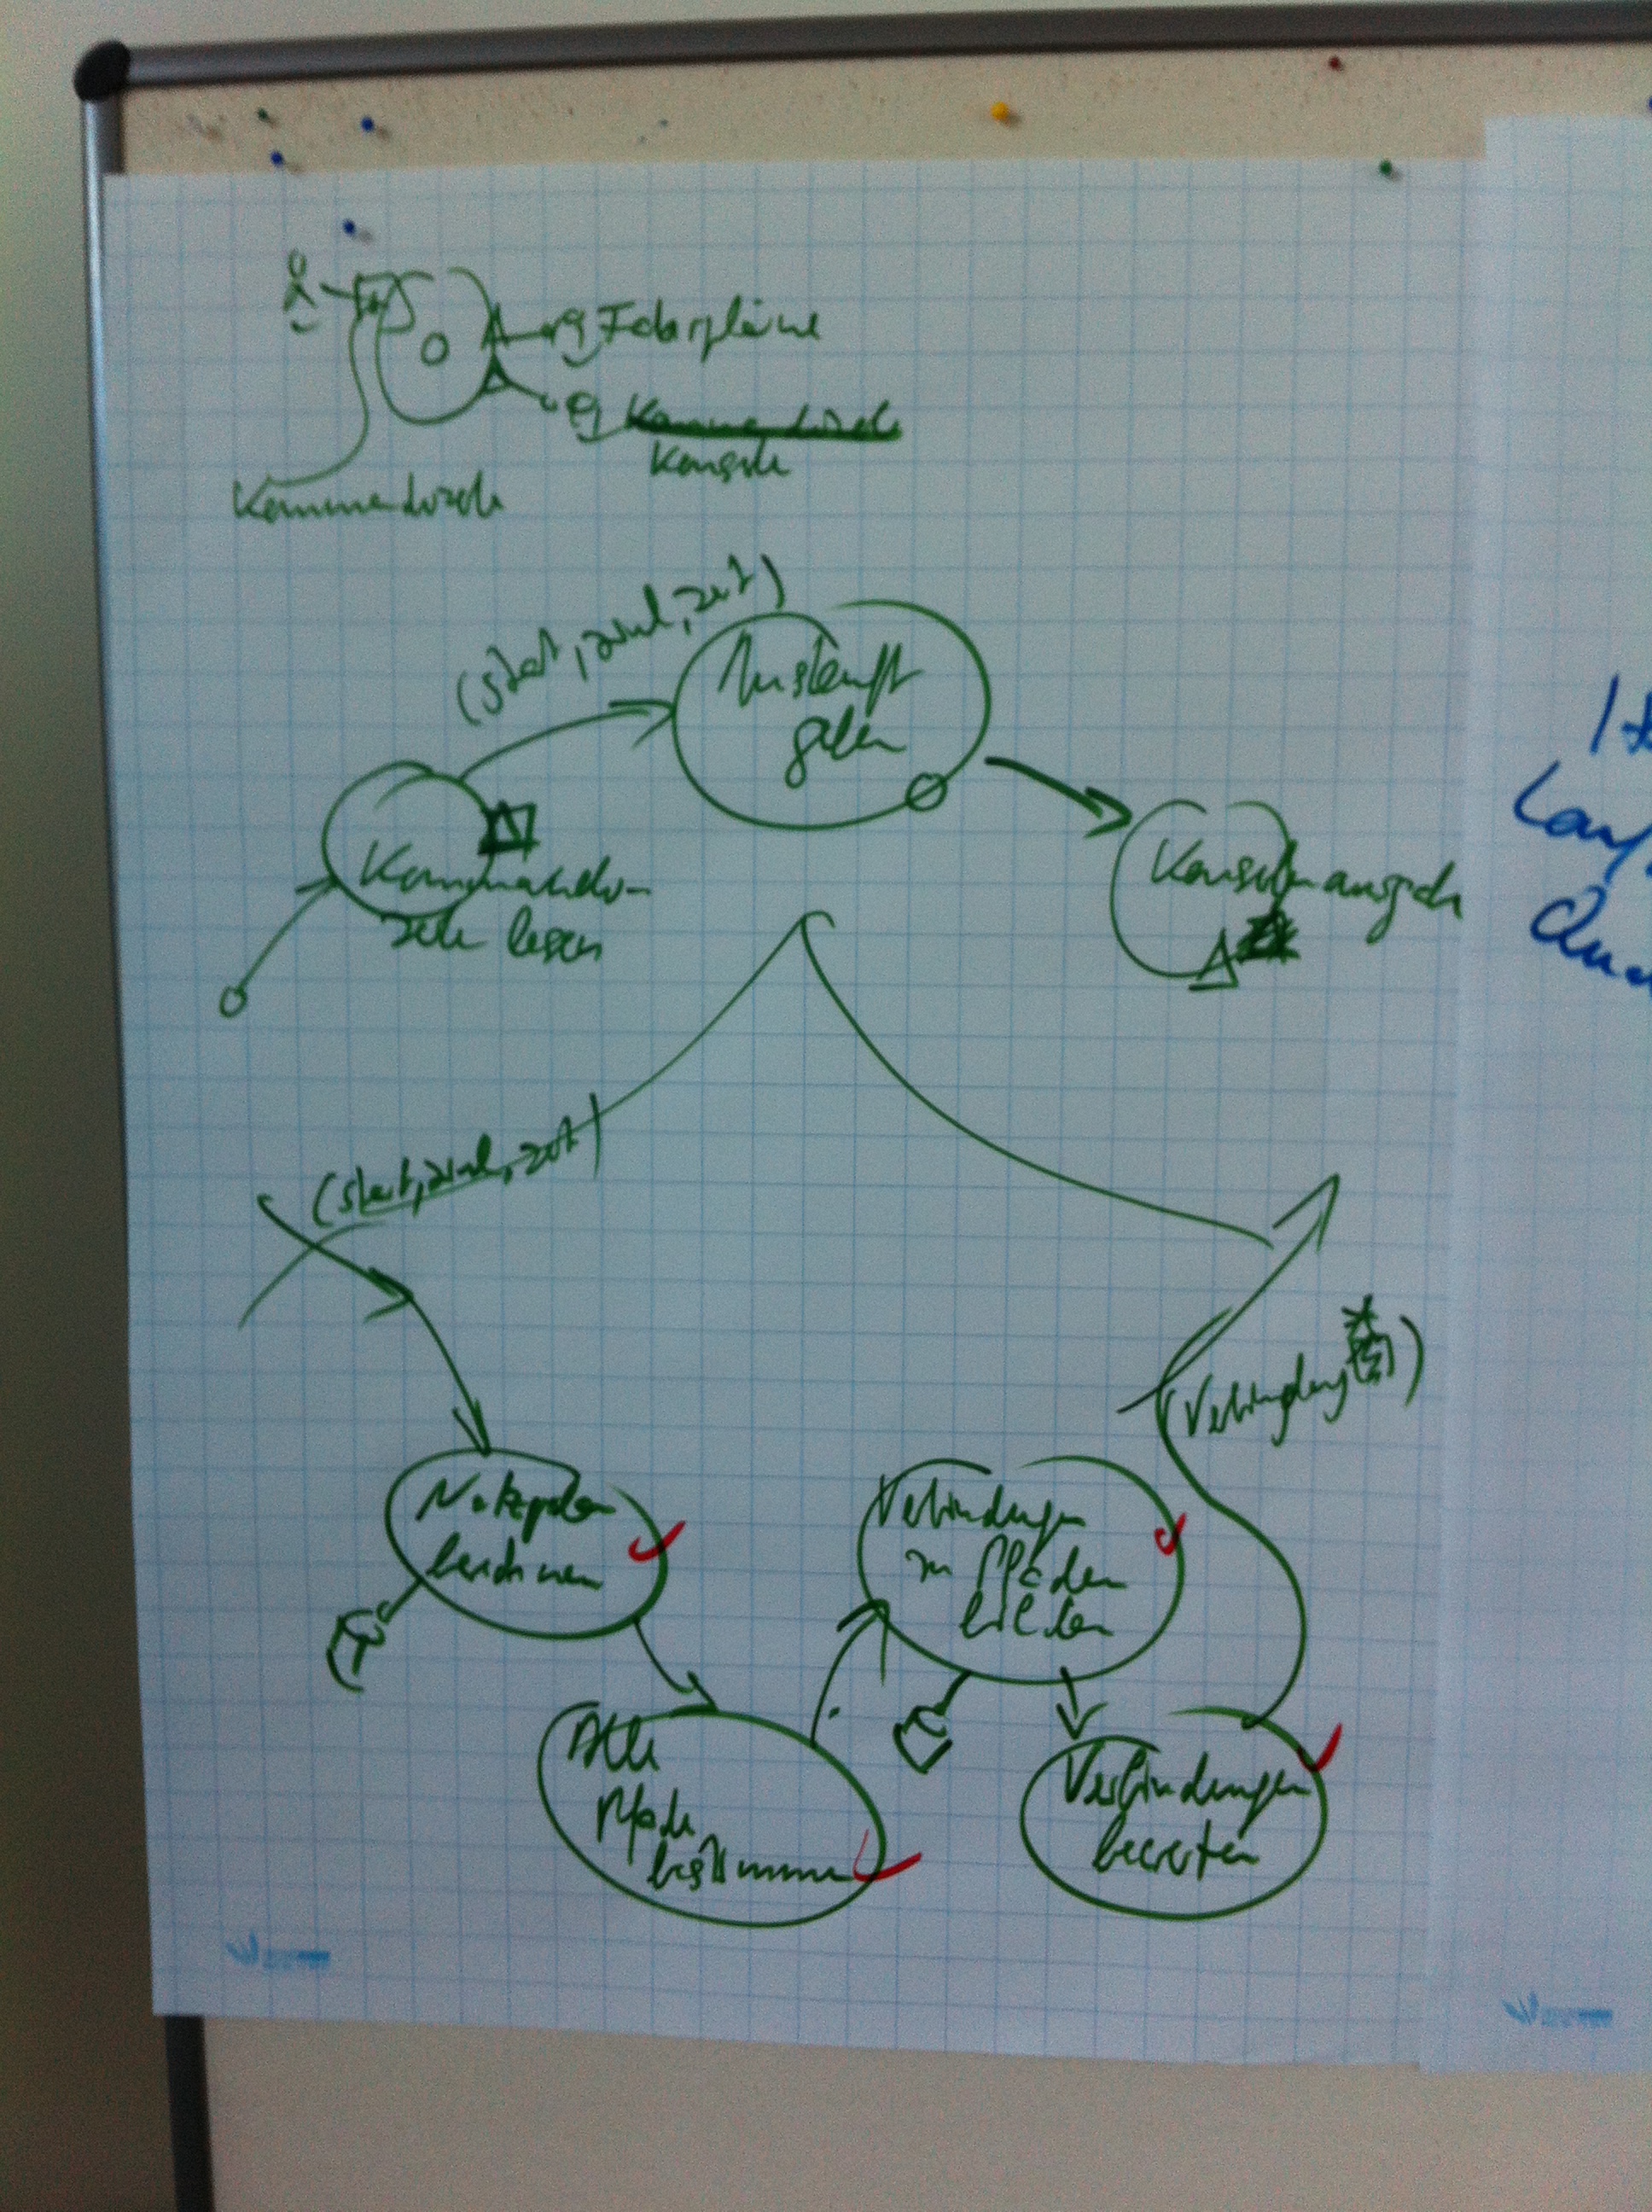 Fahrpläne
Kommandozeile
Konsole
Kommandozeile
(Start, Ziel, Zeit)
Auskunft
geben
Kommando-
zeile lesen
Konsolenausgabe
(Start, Ziel, Zeit)
(Verbindung*)
Netzplan
berechnen
Verbindungen
zu Pfaden
bilden
Alle
Pfade
bestimmen
Verbindungen
bewerten